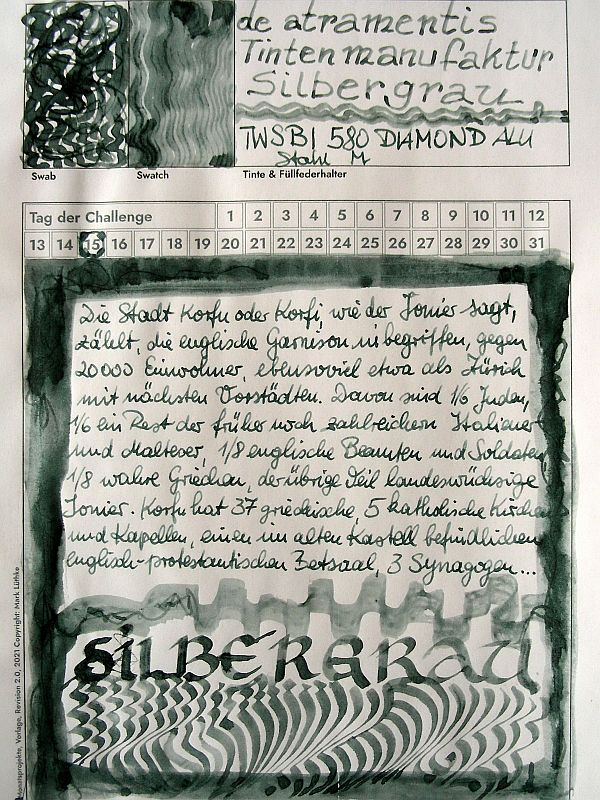 de atramentis
Tintenmanufaktur
Silbergrau
TWSBI 580 DIAMOND ALU
Stahl M
Swab Swatch Tinte & Füllfederhalter
Tag der Challenge 1 2 3 4 5 6 7 8 9 10 11 12
13 14 15 16 17 18 19 20 21 22 23 24 25 26 27 28 29 30 31
Die Stadt Korfu oder Korfi, wie der Jonier sagt,
zählt, die englische Garnison inbegriffen, gegen
20000 Einwohner, ebensoviel etwa als Zürich
mit nächsten Vorstädten. Davon sind 1/6 Juden,
1/6 ein Rest der früher noch zahlreichern Italiener
und Malteser, 1/8 englische Beamten und Soldaten,
1/8 wahre Griechen, der übrige Teil landeswüchsige
Jonier. Korfu hat 37 griechische, 5 katholische Kirchen
und Kapellen, einen im alten Kastell befindlichen
englisch-protestantischen Betsaal, 3 Synagogen...
SILBERGRAU
Monatsprojekte, Vorlage, Revision 2.0, 2021 Copyright: Mark Lüthke